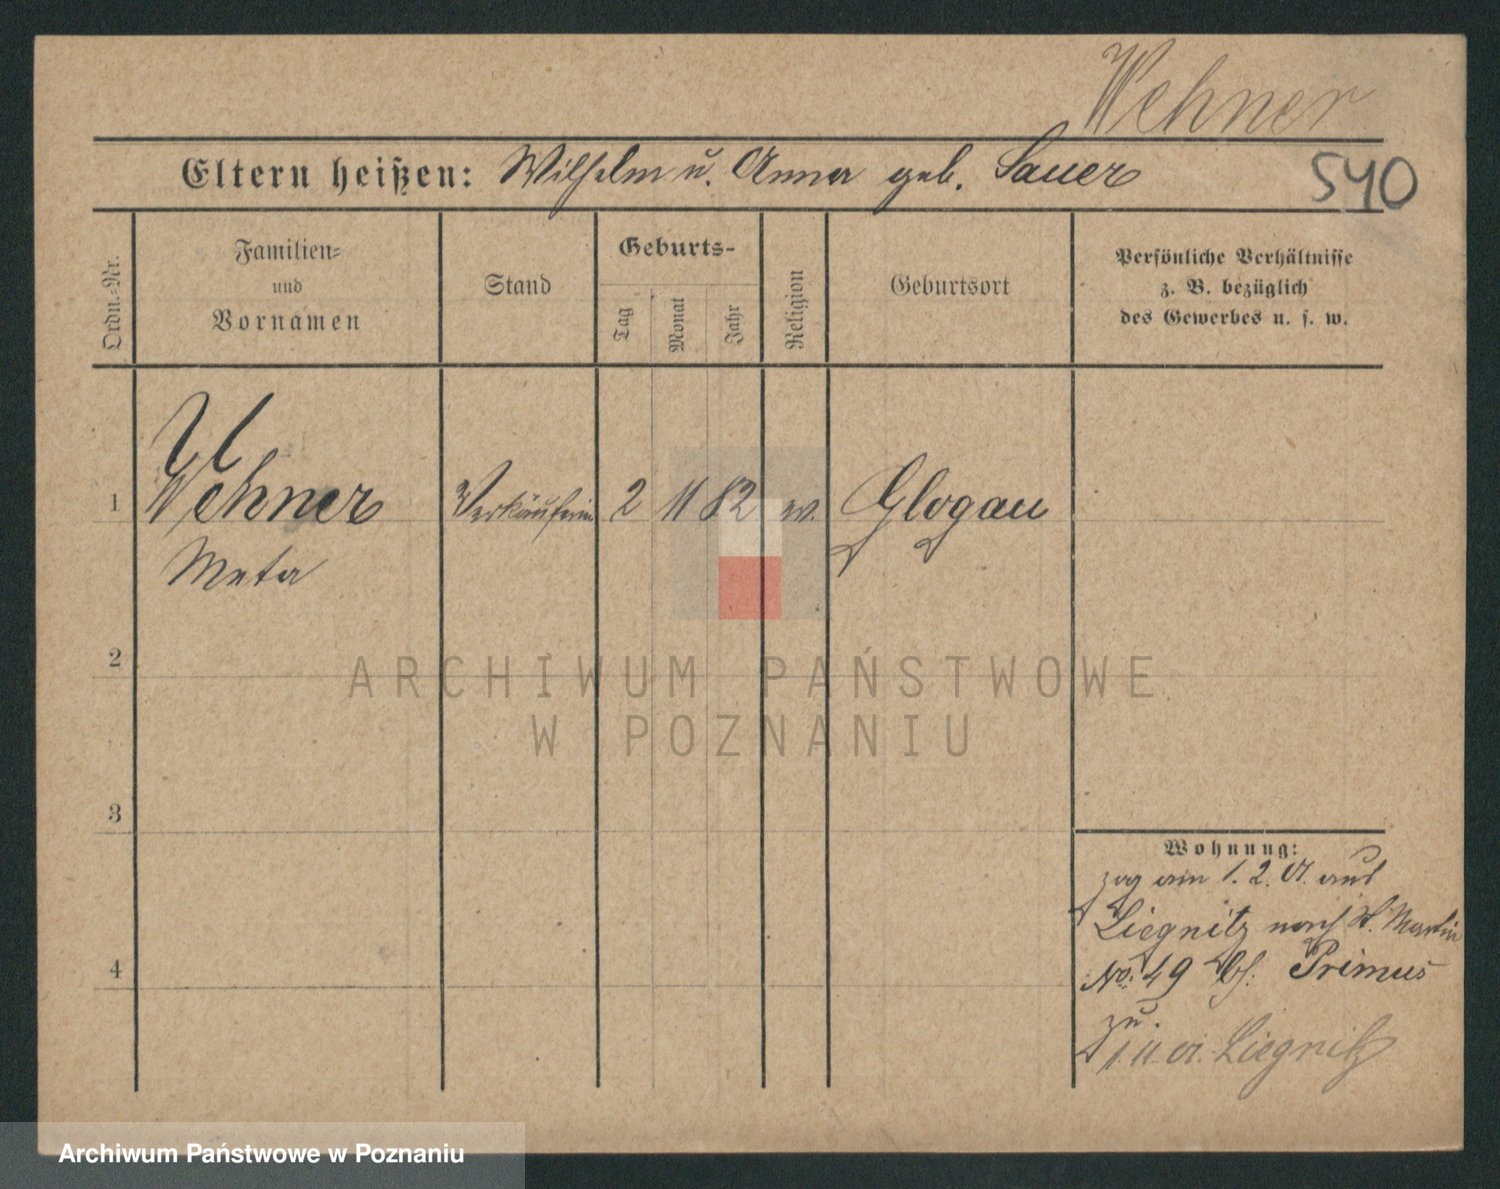 Wehner
Eltern heißen: Wilhelm u. Anna geb. Sauer
540
Ordn.-Nr.
Familien-
und
Vornamen
Stand
Geburts-
Tag
Monat
Jahr
Religion
Geburtsort
Persönliche Verhältnisse
z. B. bezüglich
des Gewerbes u. s. w.
1 Wehner Verkäuferin 2 11 82 ev. Glogau
Meta
2
3
4
ARCHIWUM PAŃSTWOWE
W POZNANIU
Wohnung:
zog am 1. 2. 01. aus
Liegnitz nach St. Martin
No: 49 bei: Primus
zu.
1. 11. 01. Liegnitz
Archiwum Państwowe w Poznaniu